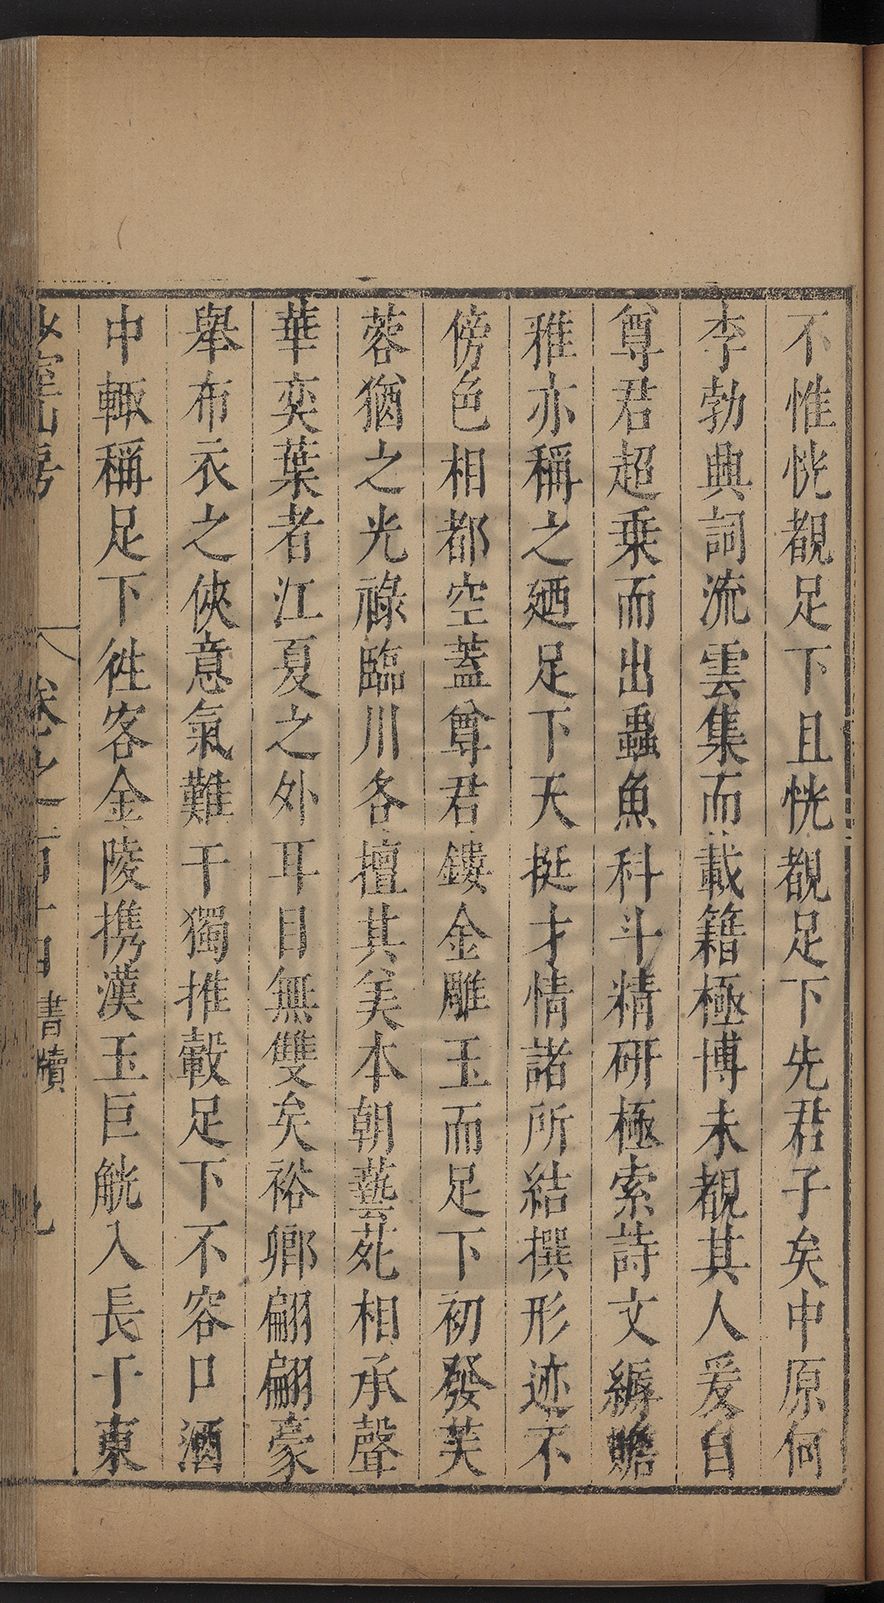 不惟恍覩足下且恍覩足下先君子矣中原何
李勃興詞流雲集而載籍極博未覩其人爰自
尊君超乗而出蟲魚科斗精研極索詩文縟贍
雅亦稱之廼足下天挺才情諸所結撰形迹不
傍色相都空蓋尊君鏤金雕玉而足下初發芙
蓉猶之光祿臨川各擅其美本朝藝苑相承聲
華奕葉者江夏之外耳目無雙矣裕卿翩翩豪
舉布衣之俠意氣難干獨推轂足下不容口酒
中輙稱足下徃客金陵携漢玉巨觥入長干東
少室山房 卷之一百十四 書牘 九